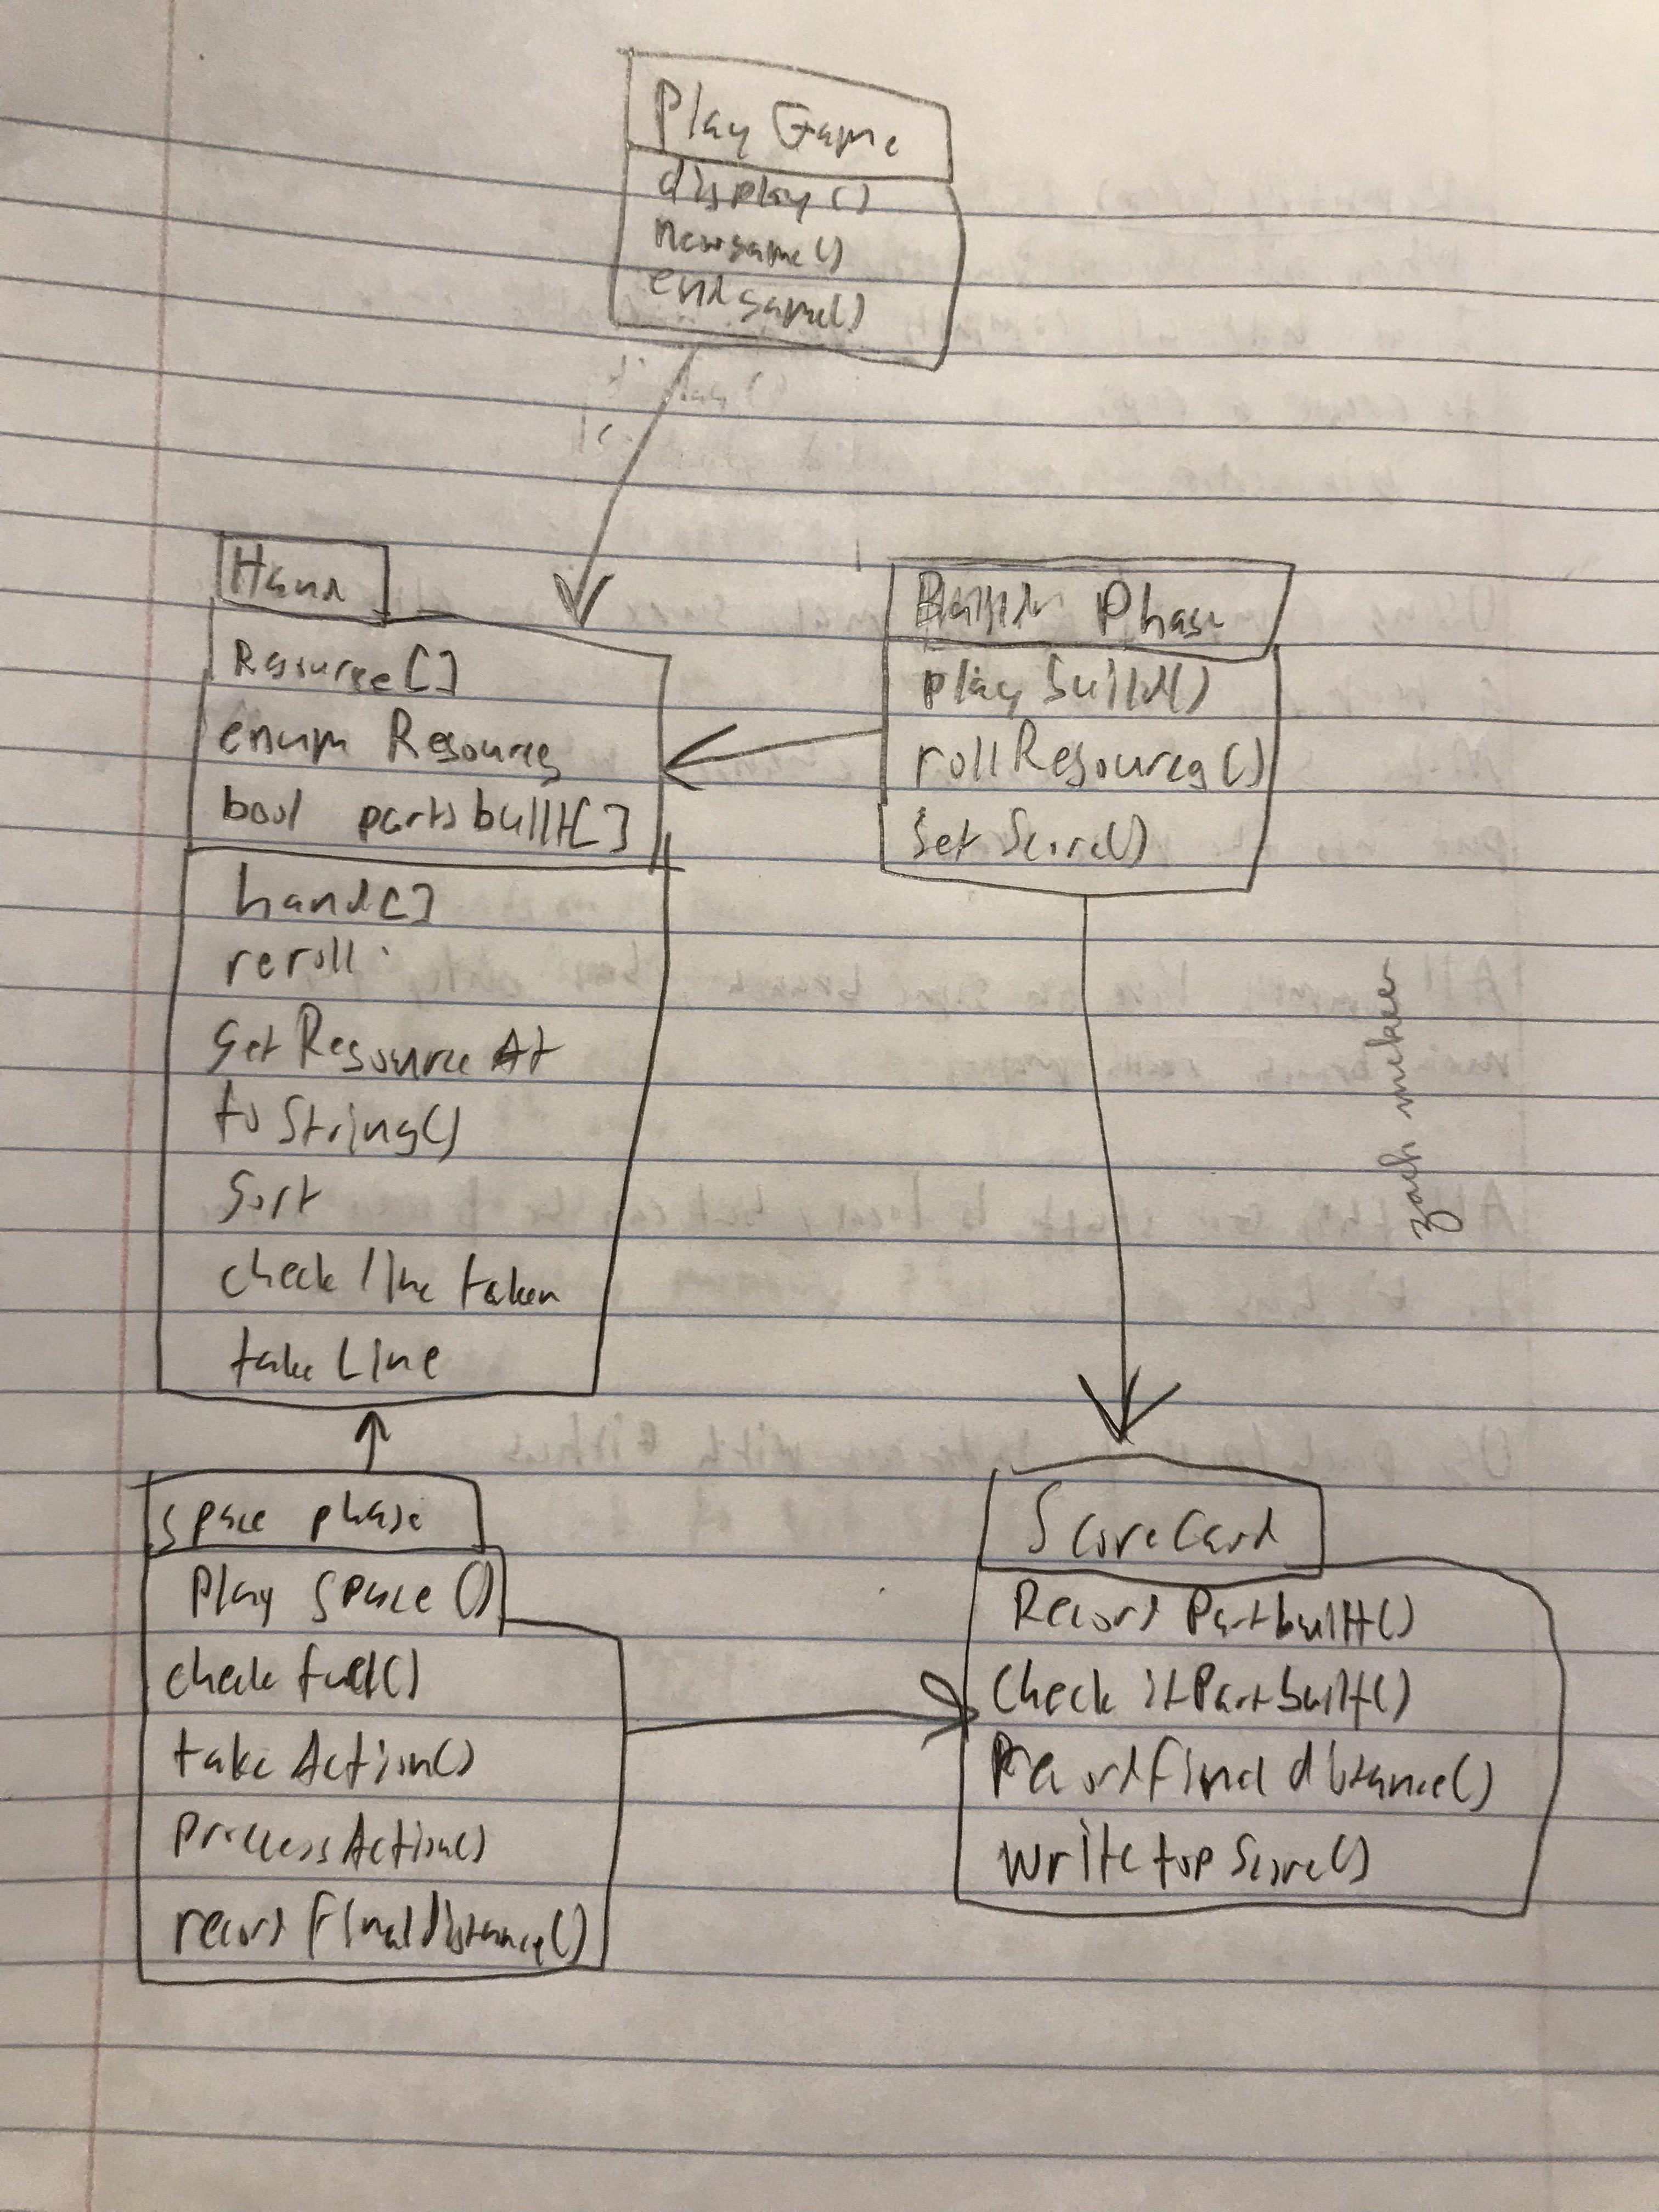 Play Game
display()
newgame()
endgame()
Hand
Resource[]
enum Resources
bool partsbuilt[]
hand[]
reroll
getResourceAt
toString()
Sort
check line taken
takeLine
Build Phase
playbuild()
rollResources()
Set Score()
zach mckee
space phase
Play space()
check fuel()
takeAction()
ProcessAction()
record finaldistance()
ScoreCard
Record Partbuilt()
Check ifPartbuilt()
Recordfinal distance()
write top Score()